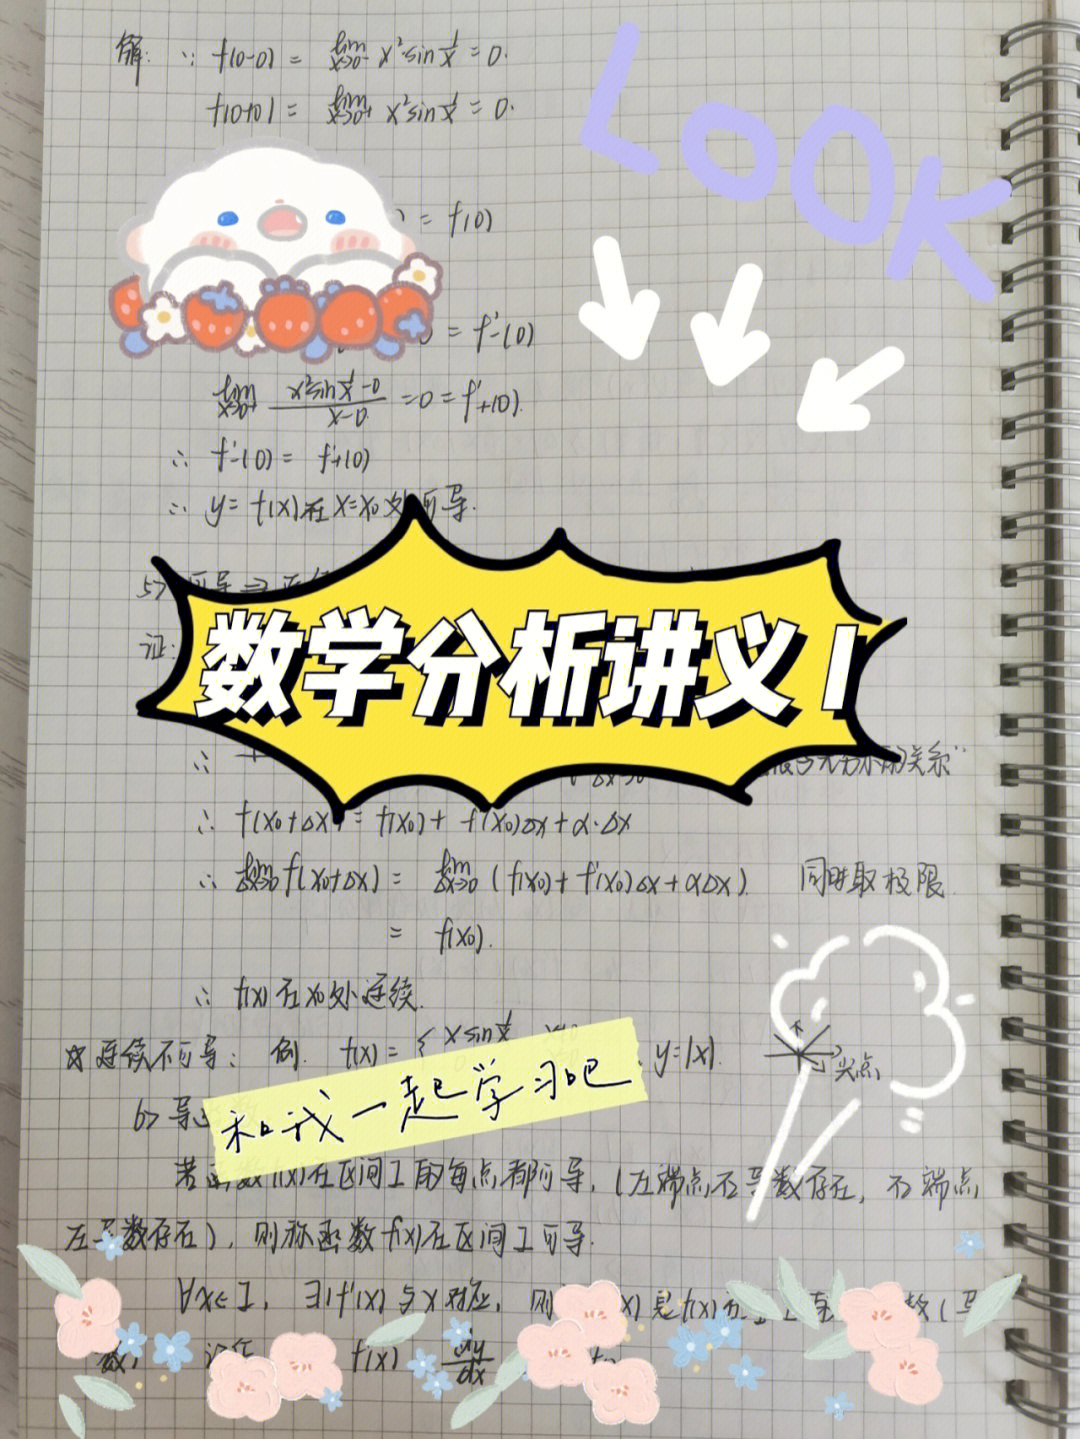 解: ∵ f(0-0) = lim x→0⁻ x² sin 1/x = 0.
f(0+0) = lim x→0⁺ x² sin 1/x = 0.
LOOK
) = f(0)
= f'₋(0)
lim x→0⁺ (x² sin 1/x - 0)/(x-0) = 0 = f'₊(0).
∴ f'₋(0) = f'₊(0)
∴ y = f(x)在 x=x₀处可导.
5> 可导⇒连续
证:
数学分析讲义1
∴
无穷小的关系"
∴ f(x₀+Δx) = f(x₀) + f'(x₀)Δx + α·Δx
∴ lim Δx→0 f(x₀+Δx) = lim Δx→0 (f(x₀) + f'(x₀)Δx + αΔx). 同时取极限.
= f(x₀).
∴ f(x)在x₀处连续.
☆连续不可导: 例. f(x) = { x sin 1/x y=|x|. 尖点
和我一起学习吧
6> 导
若函数f(x)在区间I的每点都可导, (左端点右导数存在, 右端点
左导数存在), 则称函数f(x)在区间I可导.
∀x∈I, ∃1f'(x)与x对应, 则 (x)是f(x)在
数), 记作 f'(x) dy/dx